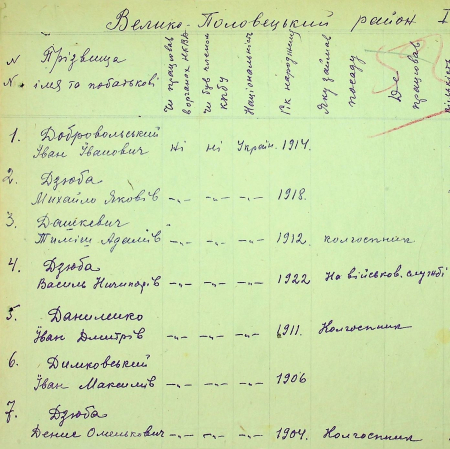 Велико-Половецький район
N Прізвища
N. імя та побатькові
Чи працював в органах НКВД
Чи був членом КПбУ
Національність
Рік народжен.
Яку займав посаду
Де працював
1. Добровольський
Іван Іванович Ні Ні Україн. 1914.
2. Дзюба
Михайло Яковів -„- -„- -„- 1918.
3. Дашкевич
Тиміш Адамів -„- -„- -„- 1912. колгоспник
4. Дзюба
Василь Ничипорів -„- -„- -„- 1922 На військов. службі
5. Даниленко
Іван Дмитрів -„- -„- -„- 1911. Колгоспник
6. Димковський
Іван Максимів -„- -„- -„- 1906
7. Дзюба
Денис Омелькович -„- -„- -„- 1904. Колгоспник